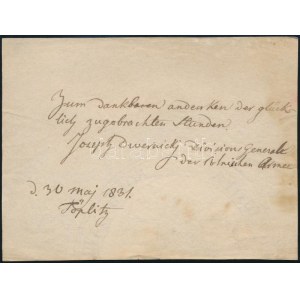 Zum dankbaren andenken der glück-
lich zugebrachten Stunden
Joseph Dwernicki Divisions Generale
der Polnischen Armee
d. 30 maj 1831.
Töplitz